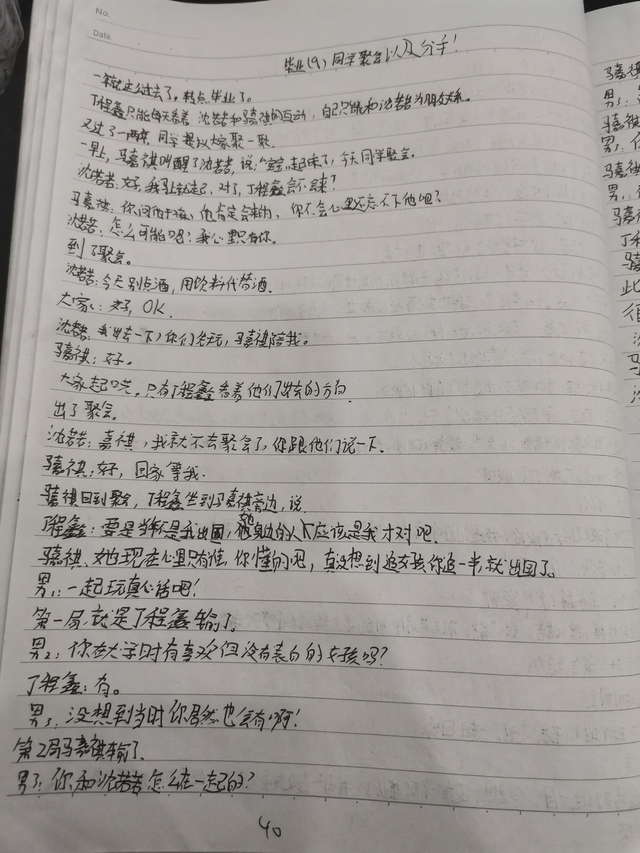 No.
Date.
毕业(9)同学聚会以及分手!
一年就这过去了,转点毕业了。
丁程鑫只能每天看着沈若若和马嘉祺的互动,自己只能和沈若若为朋友关系。
又过了一两年,同学提议大家聚一聚.
一早上,马嘉祺叫醒了沈若若,说:宝宝,起来了,今天同学聚会。
沈若若:好,我马上就走,对了,丁程鑫会不会来?
马嘉祺:你问他干嘛,他肯定会来的,你不会心里还忘不下他吧?
沈若若:怎么可能呢?我心里只有你。
到了聚会。
沈若若:今天别点酒,用饮料代替酒.
大家:好,OK.
沈若若:我出去一下,你们先玩,马嘉祺陪我。
马嘉祺:好。
大家起哄,只有丁程鑫看着他们出去的方向
出了聚会.
沈若若:嘉祺,我就不去聚会了,你跟他们说一下.
马嘉祺:好,回家等我.
马嘉祺回到聚会,丁程鑫坐到马嘉祺旁边,说.
丁程鑫:要是当年不是我出国,她身边的人应该是我才对吧.
马嘉祺:她现在心里只有谁,你懂的吧,真没想到追女孩你追一半,就出国了。
男1:一起玩真心话吧!
第一局,就是丁程鑫输了。
男2:你在大学时有喜欢但没有表白的女孩吗?
丁程鑫:有。
男3:没想到当时你居然也会有啊!
第2局马嘉祺输了.
男3:你和沈若若怎么在一起的?
40
马嘉
男:
马嘉
男:你
马嘉
男:
丁程
马嘉
此
很
沈
马
沈